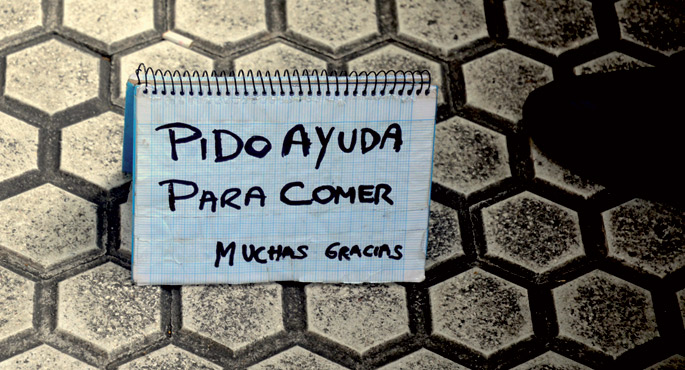 PIDO AYUDA
PARA COMER
MUCHAS GRACIAS